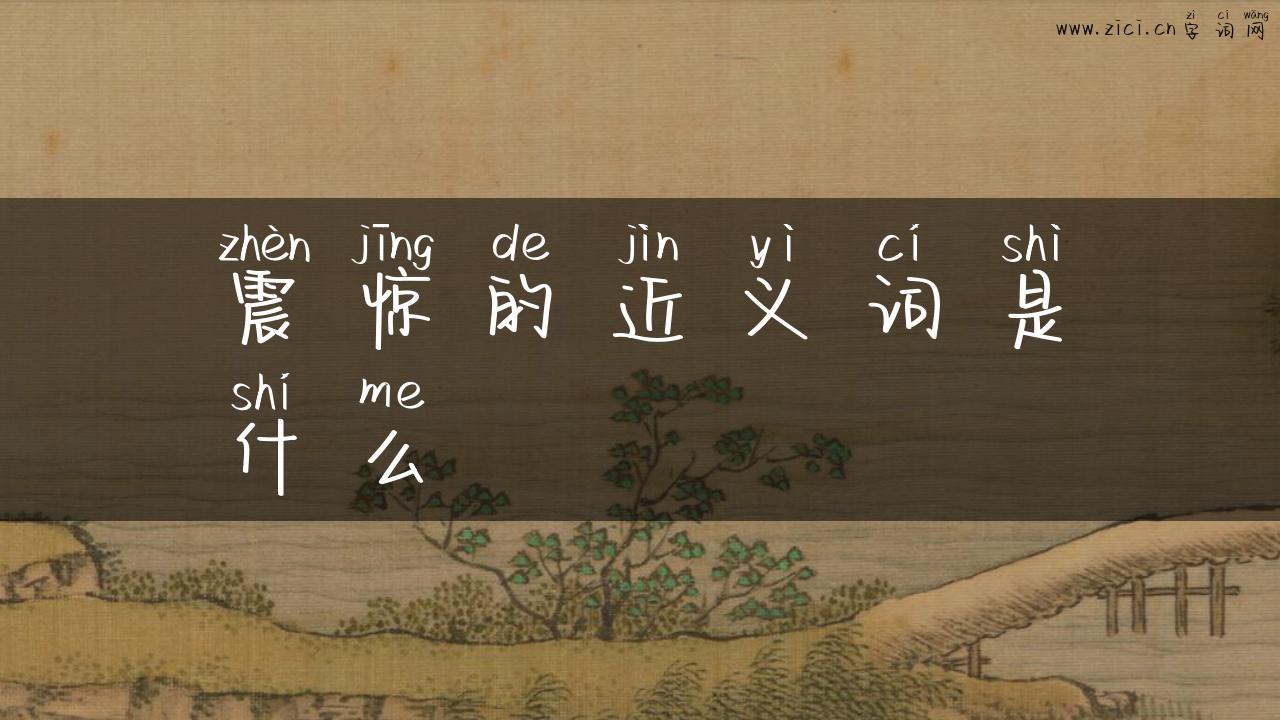 zì cí wǎng
www.zici.cn 字词网
zhèn jīng de jìn yì cí shì
震惊的近义词是
shí me
什么